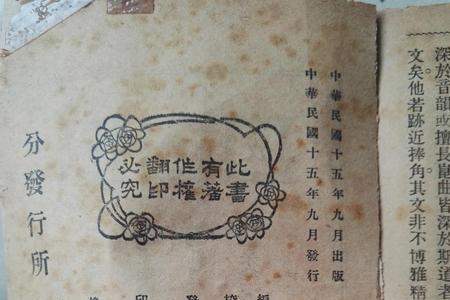 深於音韻或擅長崑曲皆深於斯道者
文矣。他若跡近捧角。其文非不博雅精
中華民國十五年九月出版
中華民國十五年九月發行
此書
有著
作權
翻印
必究
分發行所